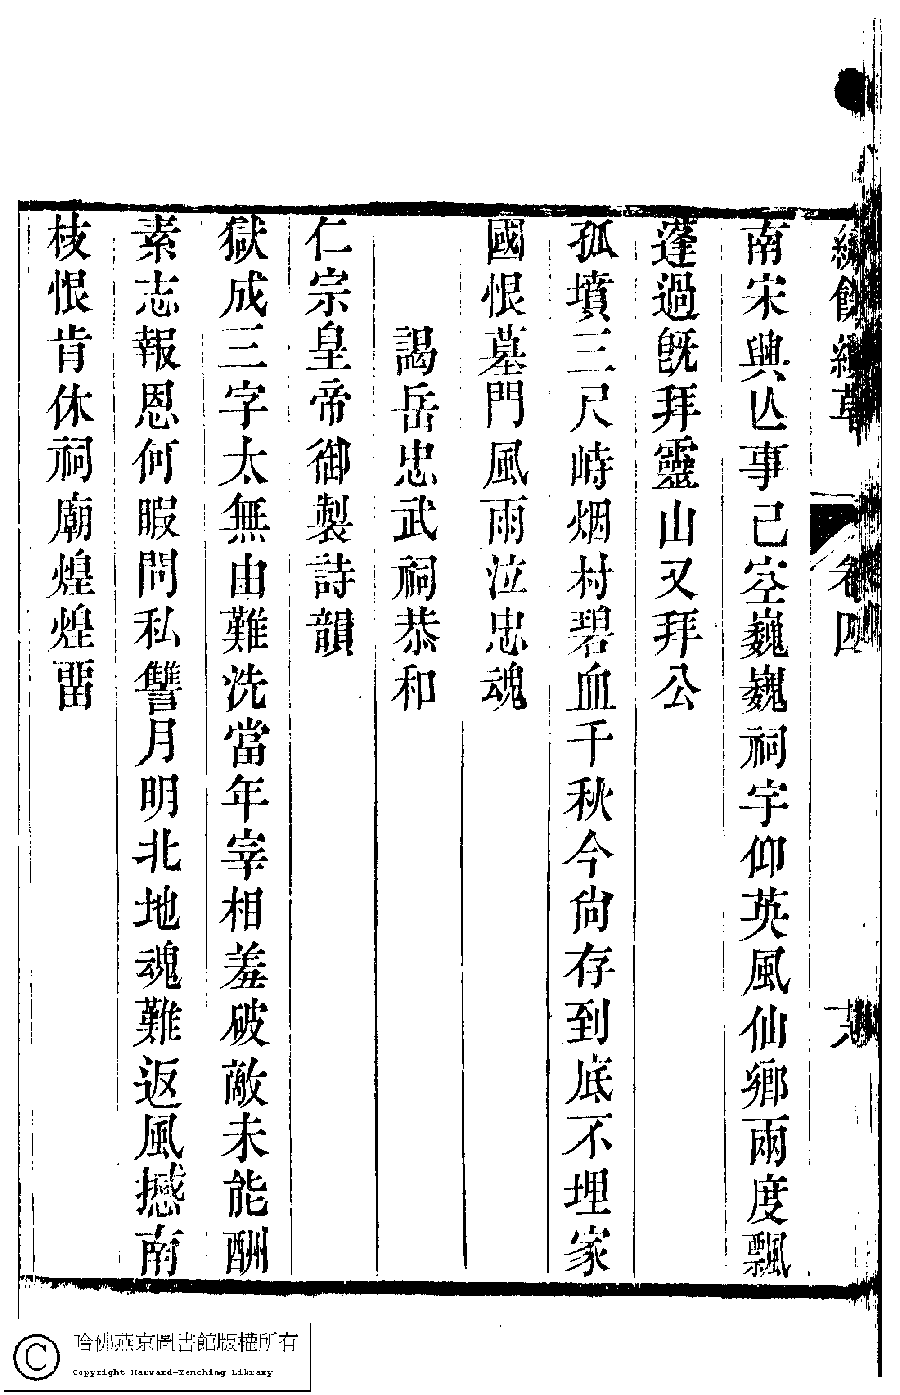 南宋興亾事已空巍巍祠宇仰英風仙鄉兩度飄
蓬過旣拜靈山又拜公
孤墳三尺峙烟村碧血千秋今尙存到底不埋家
國恨墓門風雨泣忠魂
謁岳忠武祠恭和
仁宗皇帝御製詩韻
獄成三字太無由難洗當年宰相羞破敵未能酬
素志報恩何暇問私讐月明北地魂難返風撼南
枝恨肯休祠廟煌煌畱
卷四
哈佛燕京圖書館版權所有
Copyright Harvard-Yenching Library